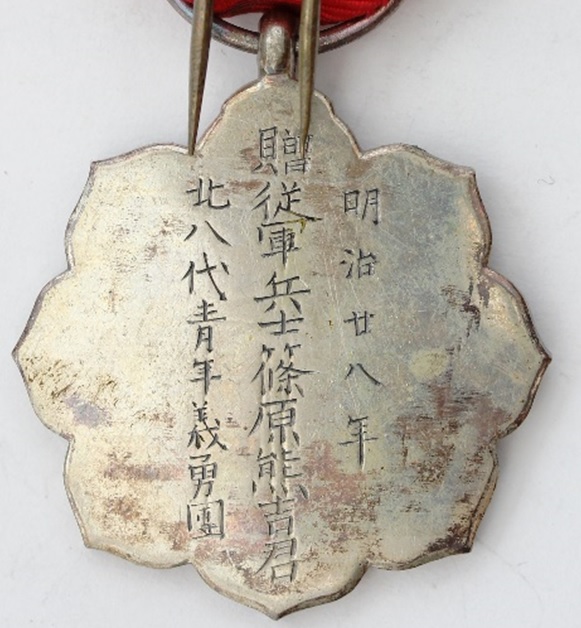 明治廿八年
贈従軍兵士篠原熊吉君
北八代青年義勇團